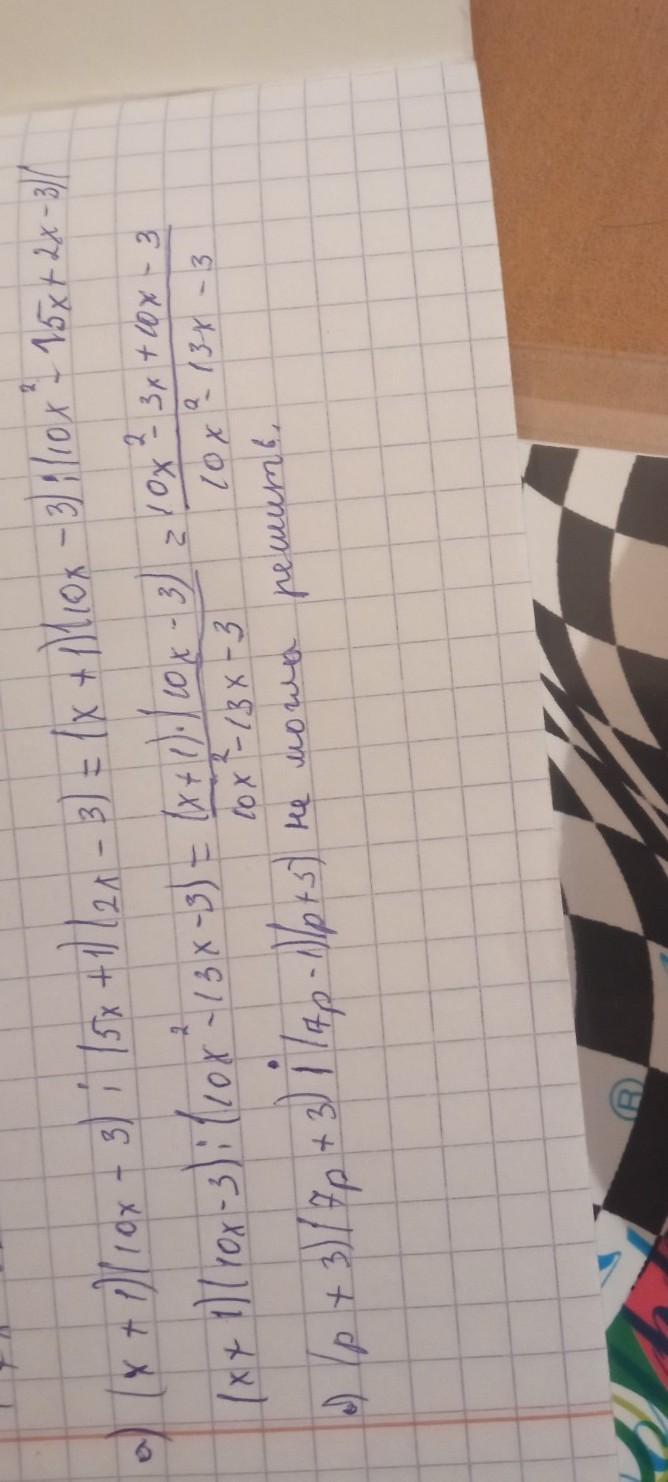 а) (x + 1)(10x - 3) : (5x + 1)(2x - 3) = (x + 1)(10x - 3) : (10x² - 15x + 2x - 3)(
(x + 1)(10x - 3) : (10x² - 13x - 3) = (x + 1)·(10x - 3) / 10x² - 13x - 3 = 10x² - 3x + 10x - 3 / 10x² - 13x - 3
в) (p + 3)(7p + 3) : (7p - 1)(p + 3) не могла решить.
®